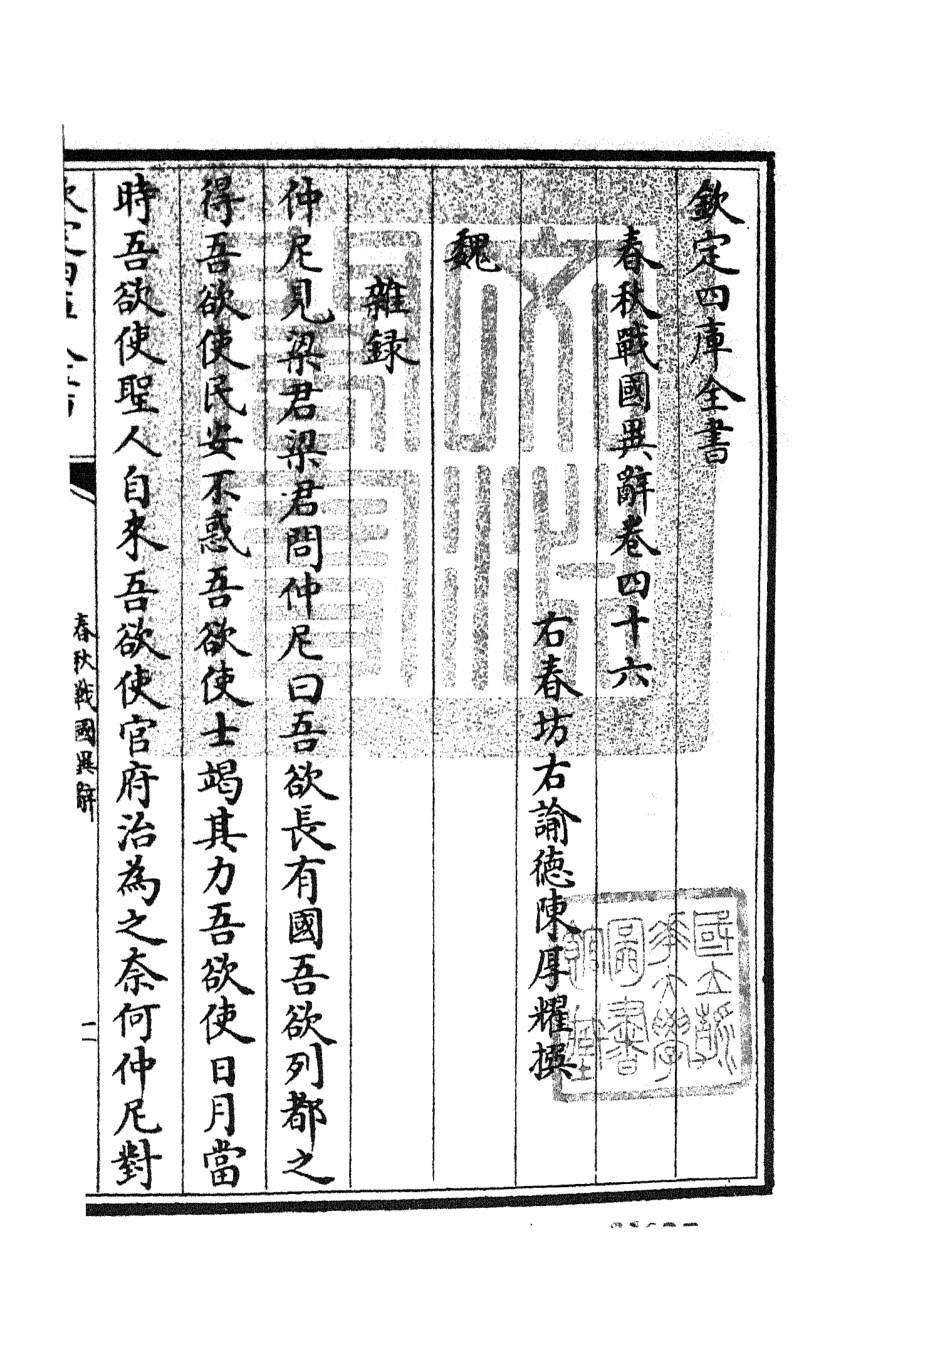 欽定四庫全書
春秋戰國異辭卷四十六
右春坊右諭德陳厚耀撰
魏
雜録
仲尼見梁君梁君問仲尼曰吾欲長有國吾欲列都之
得吾欲使民安不惑吾欲使士竭其力吾欲使日月當
時吾欲使聖人自來吾欲使官府治為之奈何仲尼對
春秋戰國異辭